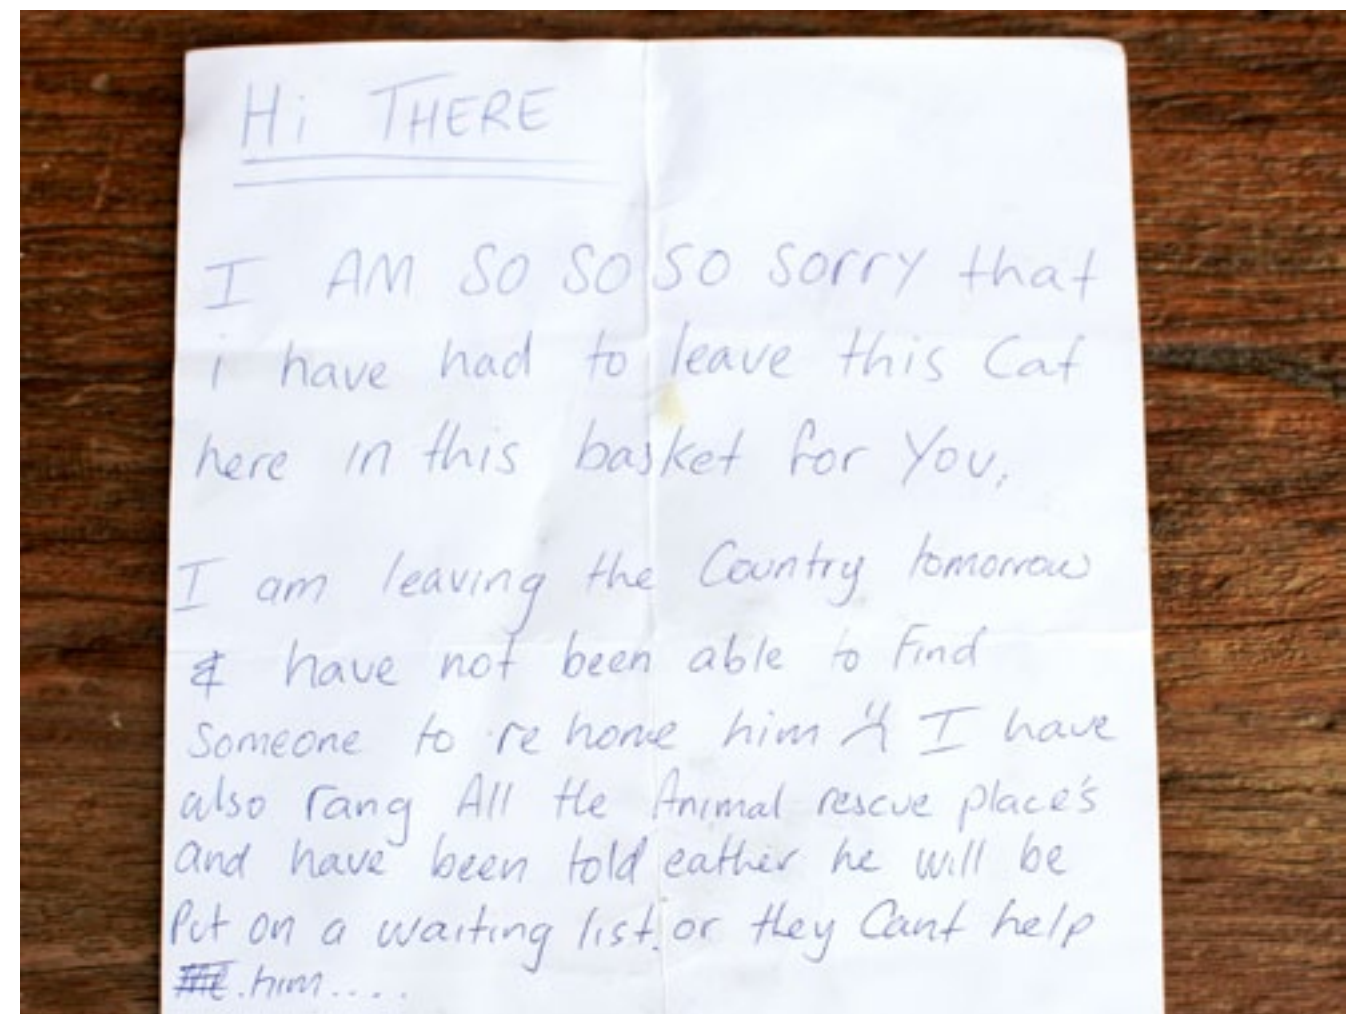 Hi THERE
I AM SO SO SO sorry that
i have had to leave this Cat
here in this basket for You.
I am leaving the Country tomorrow
& have not been able to Find
someone to re home him :( I have
also rang All the Animal rescue place's
and have been told eather he will be
Put on a waiting list. or they Cant help
him....